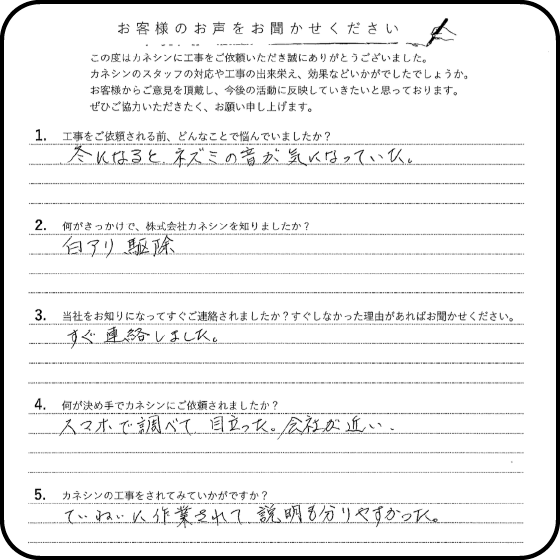 お客様のお声をお聞かせください
この度はカネシンに工事をご依頼いただき誠にありがとうございました。
カネシンのスタッフの対応や工事の出来栄え、効果などいかがでしたでしょうか。
お客様からご意見を頂戴し、今後の活動に反映していきたいと思っております。
ぜひご協力いただきたく、お願い申し上げます。
1. 工事をご依頼される前、どんなことで悩んでいましたか?
冬になると ネズミの音が 気になっていた。
2. 何がきっかけで、株式会社カネシンを知りましたか?
白アリ 駆除
3. 当社をお知りになってすぐご連絡されましたか?すぐしなかった理由があればお聞かせください。
すぐ 連絡しました。
4. 何が決め手でカネシンにご依頼されましたか?
スマホで調べて 目立った。会社が近い.
5. カネシンの工事をされてみていかがですか?
ていねいに作業されて 説明も分りやすかった。